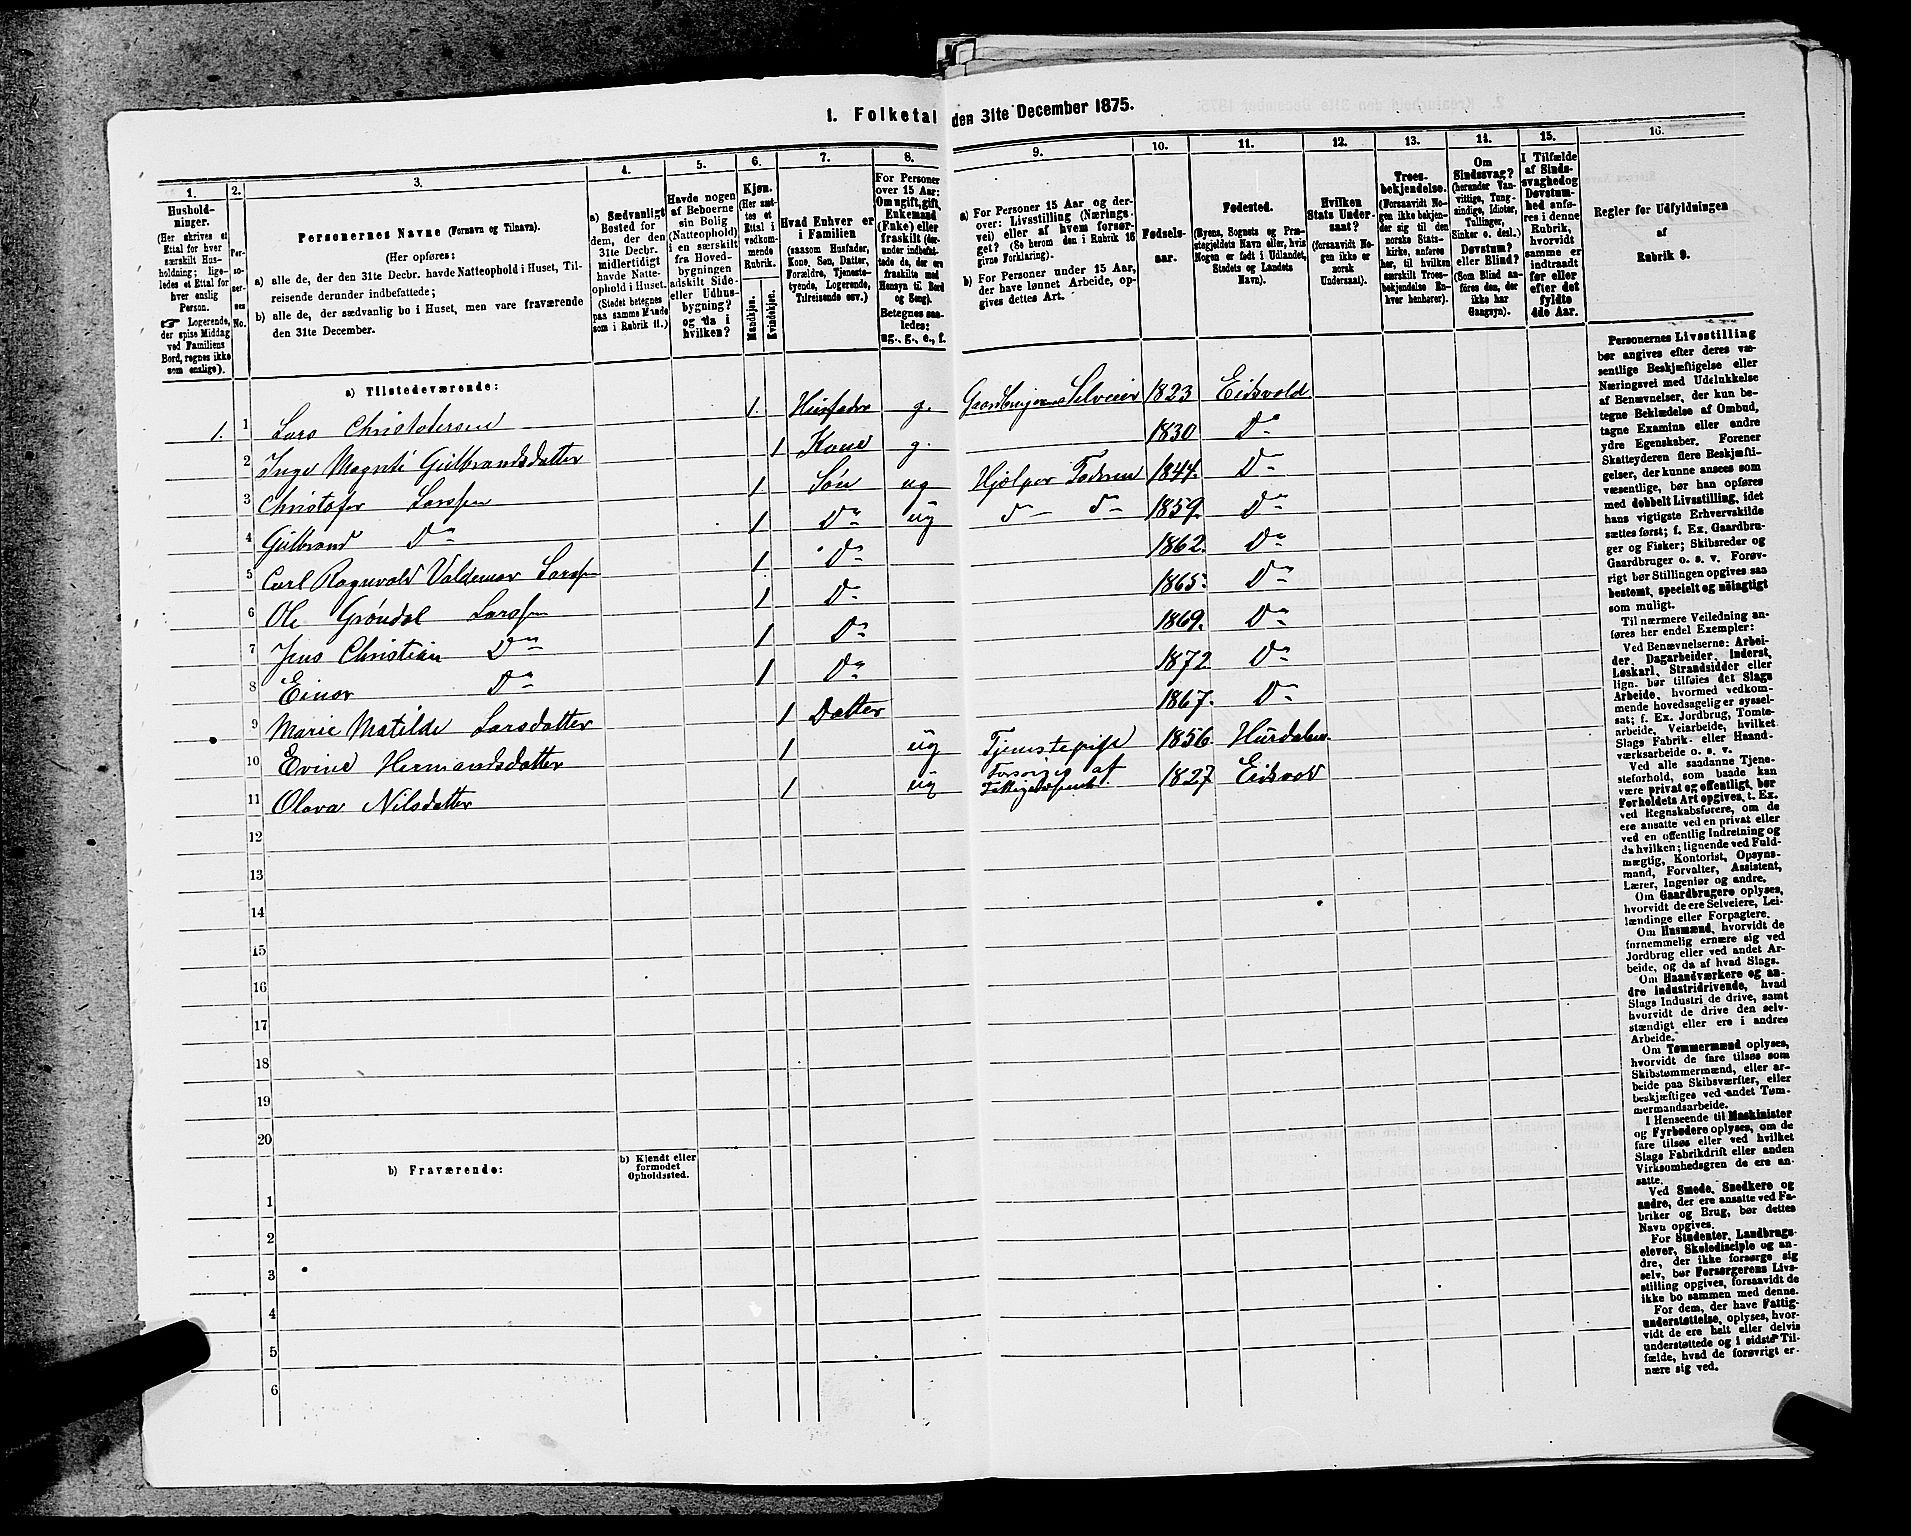 1. Folketal den 31te December 1875.
1.
2.
3.
4.
5.
6.
7.
8.
9.
10.
11.
12.
13.
14.
15.
16.
Hushold-
ninger.
(Her skrives et
Ettal for hver
særskilt Hus-
holdning; lige-
ledes et Ettal for
hver enslig
Person.
☞ Logerende,
der spise Middag
ved Familiens
Bord, regnes ikke
som enslige).
Per-
so-
ner-
nes
No.
Personernes Navne (Fornavn og Tilnavn).
(Her opføres:
a) alle de, der den 31te Decbr. havde Natteophold i Huset, Til-
reisende derunder indbefattede;
b) alle de, der sædvanlig bo i Huset, men vare fraværende
den 31te December.
a) Sædvanligt
Bosted for
dem, der den
31te Decbr.
midlertidigt
havde Natte-
ophold i Huset.
(Stedet betegnes
paa samme Maade
som i Rubrik 11.)
Havde nogen
af Beboerne
sin Bolig
(Natteophold)
i en særskilt
fra Hoved-
bygningen
adskilt Side-
eller Udhus-
bygning?
og da i
hvilken?
Kjøn.
(Her sæt-
tes et
Ettal i
vedkom-
mende
Rubrik.
Mandkjøn.
Kvindekjøn.
Hvad Enhver er
i Familien
(saasom Husfader,
Kone, Søn, Datter,
Forældre, Tjeneste-
tyende, Logerende,
Tilreisende osv.)
For Personer
over 15 Aar:
Om ugift, gift,
Enkemand
(Enke) eller
fraskilt (der-
under indbefat-
tede de, der ere
fraskilte med
Hensyn til Bord
og Seng).
Betegnes saa-
ledes:
ug., g., e., f.
a) For Personer 15 Aar og der-
over: Livsstilling (Nærings-
vei) eller af hvem forsør-
get? (Se herom den i Rubrik 16
givne Forklaring).
b) For Personer under 15 Aar,
der have lønnet Arbeide, op-
gives dettes Art.
Fødsels-
aar.
Fødested.
(Byens, Sognets og Præ-
stegjeldets Navn eller, hvis
Nogen er født i Udlandet,
Stedets og Landets
Navn).
Hvilken
Stats Under-
saat?
(forsaavidt No-
gen ikke er
norsk
Undersaat).
Troes-
bekjendelse.
(Forsaavidt No-
gen ikke bekjen-
der sig til den
norske Stats-
kirke, anføres
her, til hvilken
særskilt Troes-
bekjendelse En-
hver henhører).
Om
Sindssvag?
(herunder Van-
vittige, Tung-
sindige, Idioter,
Tullinger,
Sinker o. desl.)
Døvstum?
eller Blind?
(Som Blind an-
føres den, der
ikke har
Gangsyn).
I Tilfælde
af Sinds-
svaghed og
Døvstum-
hed anfø-
res i denne
Rubrik,
hvorvidt
samme er
indtraadt
før eller
efter det
fyldte
4de Aar.
Regler for Udfyldningen
af
Rubrik 9.
a) Tilstedeværende:
1. 1 Lars Christofersen 1. Husfader g. Gaardbruger Selveier 1823 Eidsvold
2 Inge Magnti Gulbrandsdatter 1 Kone g. 1830 Do
3 Christofer Larssen 1 Søn ug Hjælper Faderen 1844. Do
4 Gulbrand Do 1 Do ug d- do 1859. Do
5 Carl Ragnvald Valdemar Larssen 1 Do 1862. Do
6 Ole Grøndal Larssen 1 Do 1865. Do
7 Jens Christian Do 1 Do 1869. Do
8 Einar Do 1 Do 1872. Do
9 Marie Matilde Larsdatter 1 Datter 1867. Do
10 Evine Hermandsdatter 1 ug Tjenestepige 1856. Hurdalen
11 Olava Nilsdatter 1 ug Forsørges af 1827 Eidsvold
12
13
14
15
16
17
18
19
20
b) Fraværende:
b) Kjendt eller
formodet
Opholdssted.
1
2
3
4
5
6
Personernes Livsstilling
bør angives efter deres væ-
sentlige Beskjæftigelse eller
Næringsvei med Udelukkelse
af Benævnelser, der kun be-
tegne Beklædelse af Ombud,
tagne Examina eller andre
ydre Egenskaber. Forener
Skatteyderen flere Beskjæfti-
gelser, der kunne ansees som
væsentlige, bør han opføres
med dobbelt Livsstilling, idet
hans vigtigste Erhvervskilde
sættes først; f. Ex. Gaardbru-
ger og Fisker; Skibsreder og
Gaardbruger o. s. v. Forøv-
rigt bør Stillingen opgives saa
bestemt, specielt og nøiagtigt
som muligt.
Til nærmere Veiledning an-
føres her endel Exempler:
Ved Benævnelserne: Arbei-
der, Dagarbeider, Inderst,
Løskarl, Strandsidder eller
lign. bør tilføies det Slags
Arbeide, hvormed vedkom-
mende hovedsagelig er syssel-
sat; f. Ex. Jordbrug, Tomte-
arbeide, Veiarbeide, hvilket
Slags Fabrik- eller Haand-
værksarbeide o. s. v.
Ved alle saadanne Tjene-
steforhold, som baade kan
være privat og offentligt, bør
Forholdets Art opgives, t. Ex.
ved Regnskabsførere, om de
ere ansatte ved en privat eller
ved en offentlig Indretning og
da hvilken; lignende ved Fuld-
mægtig, Kontorist, Opsyns-
mand, Forvalter, Assistent,
Lærer, Ingeniør og andre.
Om Gaardbrugere oplyses,
hvorvidt de ere Selveiere, Lei-
lændinge eller Forpagtere.
Om Husmænd, hvorvidt de
fornemmelig ernære sig ved
Jordbrug eller ved andet Ar-
beide, og da af hvad Slags.
Om Haandværkere og an-
dre Industridrivende, hvad
Slags Industri de drive, samt
hvorvidt de drive den selv-
stændigt eller ere i andres
Arbeide.
Om Tømmermænd oplyses,
hvorvidt de fare tilsøs som
Skibstømmermænd, eller ar-
beide paa Skibsværfter, eller
beskjæftiges ved andet Tøm-
mermandsarbeide.
I Henseende til Maskinister
og Fyrbødere oplyses, om de
fare tilsøs eller ved hvilket
Slags Fabrikdrift eller anden
Virksomhedsgren de ere an-
satte.
Ved Smede, Snedkere og
andre, der ere ansatte ved Fa-
briker og Brug, bør dettes
Navn opgives.
For Studenter, Landbrugs-
elever, Skoledisciple og an-
dre, der ikke forsørge sig
selv, bør Forsørgerens Livs-
stilling opgives, forsaavidt de
ikke bo sammen med denne.
For dem, der have Fattig-
understøttelse, oplyses, hvor-
vidt de ere helt eller delvis
understøttede og i sidste Til-
fælde, hvad de forøvrigt er-
nære sig ved.